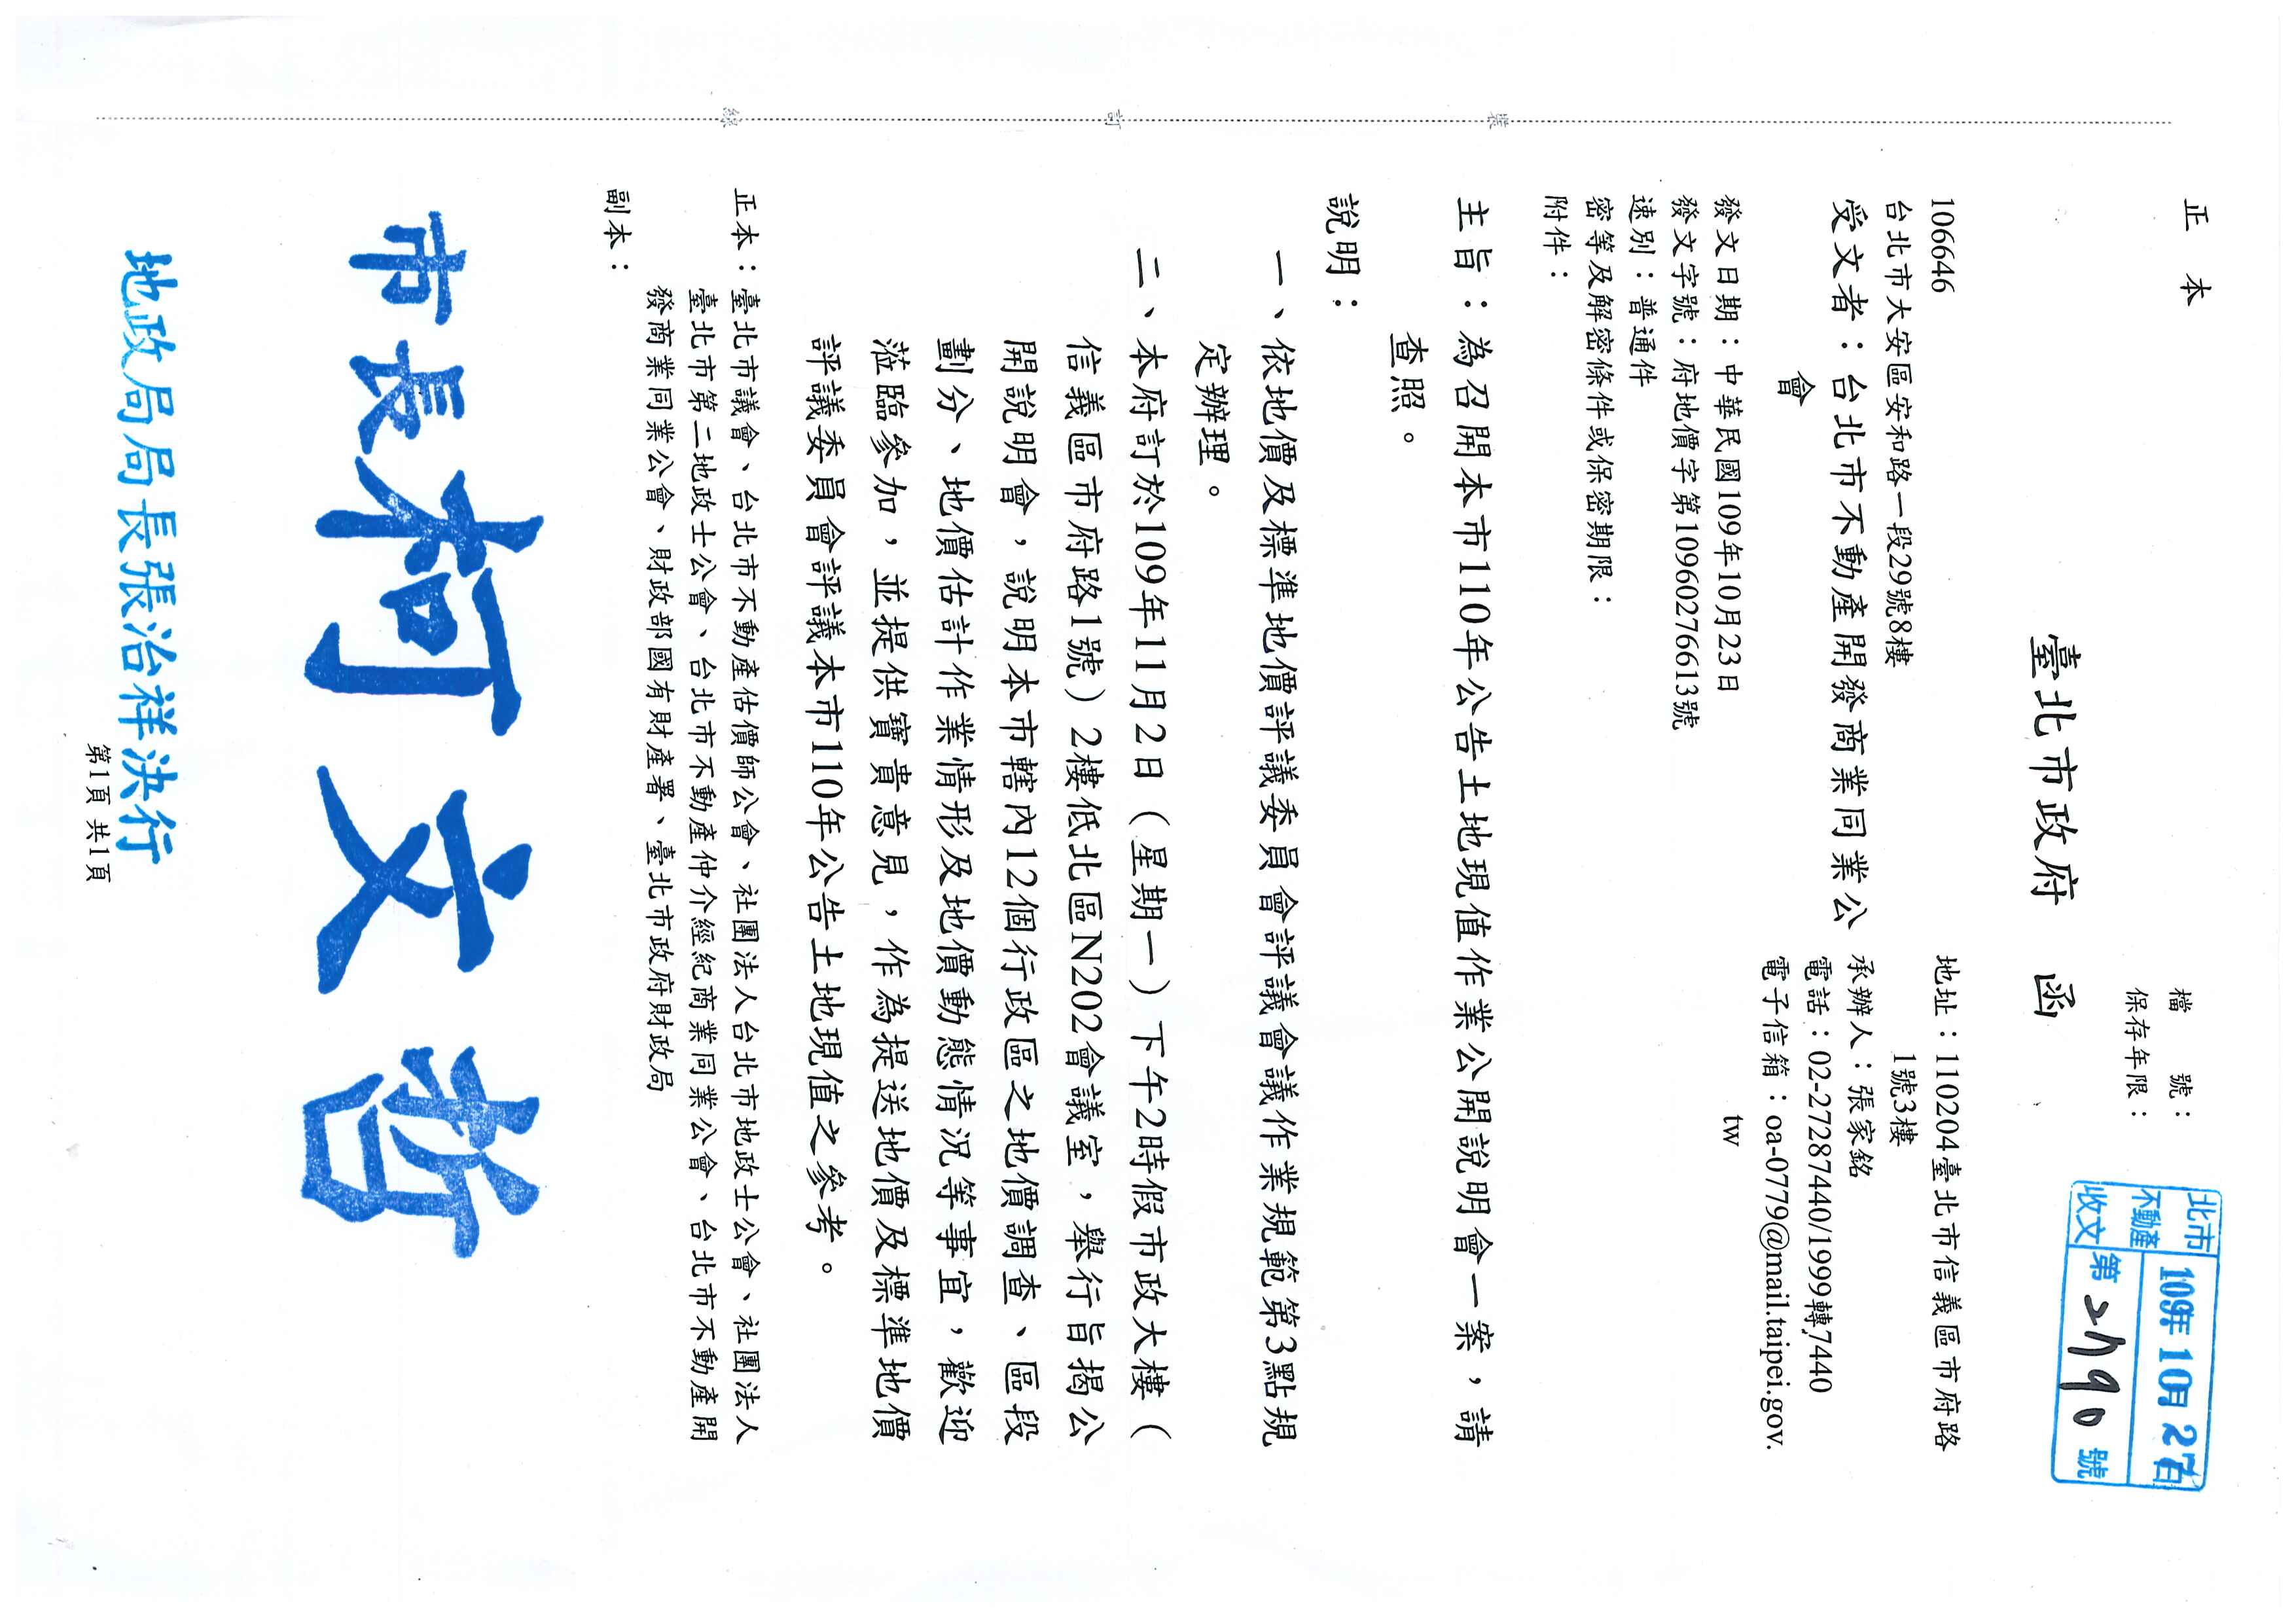 正本
檔　號：
保存年限：
北市
不動產
收文
109年10月27日
第2190號
臺北市政府　函
106646
台北市大安區安和路一段29號8樓
地址：110204臺北市信義區市府路
1號3樓
承辦人：張家銘
電話：02-27287440/1999轉7440
電子信箱：oa-0779@mail.taipei.gov.
tw
受文者：台北市不動產開發商業同業公
會
發文日期：中華民國109年10月23日
發文字號：府地價字第10960276613號
速別：普通件
密等及解密條件或保密期限：
附件：
主旨：為召開本市110年公告土地現值作業公開說明會一案，請
查照。
說明：
一、依地價及標準地價評議委員會評議會議作業規範第3點規
定辦理。
二、本府訂於109年11月2日（星期一）下午2時假市政大樓（
信義區市府路1號）2樓低北區N202會議室，舉行旨揭公
開說明會，說明本市轄內12個行政區之地價調查、區段
劃分、地價估計作業情形及地價動態情況等事宜，歡迎
蒞臨參加，並提供寶貴意見，作為提送地價及標準地價
評議委員會評議本市110年公告土地現值之參考。
正本：臺北市議會、台北市不動產估價師公會、社團法人台北市地政士公會、社團法人
臺北市第二地政士公會、台北市不動產仲介經紀商業同業公會、台北市不動產開
發商業同業公會、財政部國有財產署、臺北市政府財政局
副本：
市長柯文哲
地政局局長張治祥決行
第1頁 共1頁
裝
訂
線